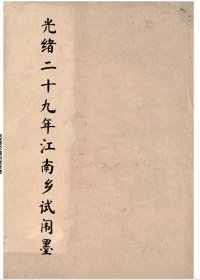 光绪二十九年江南乡试闱墨